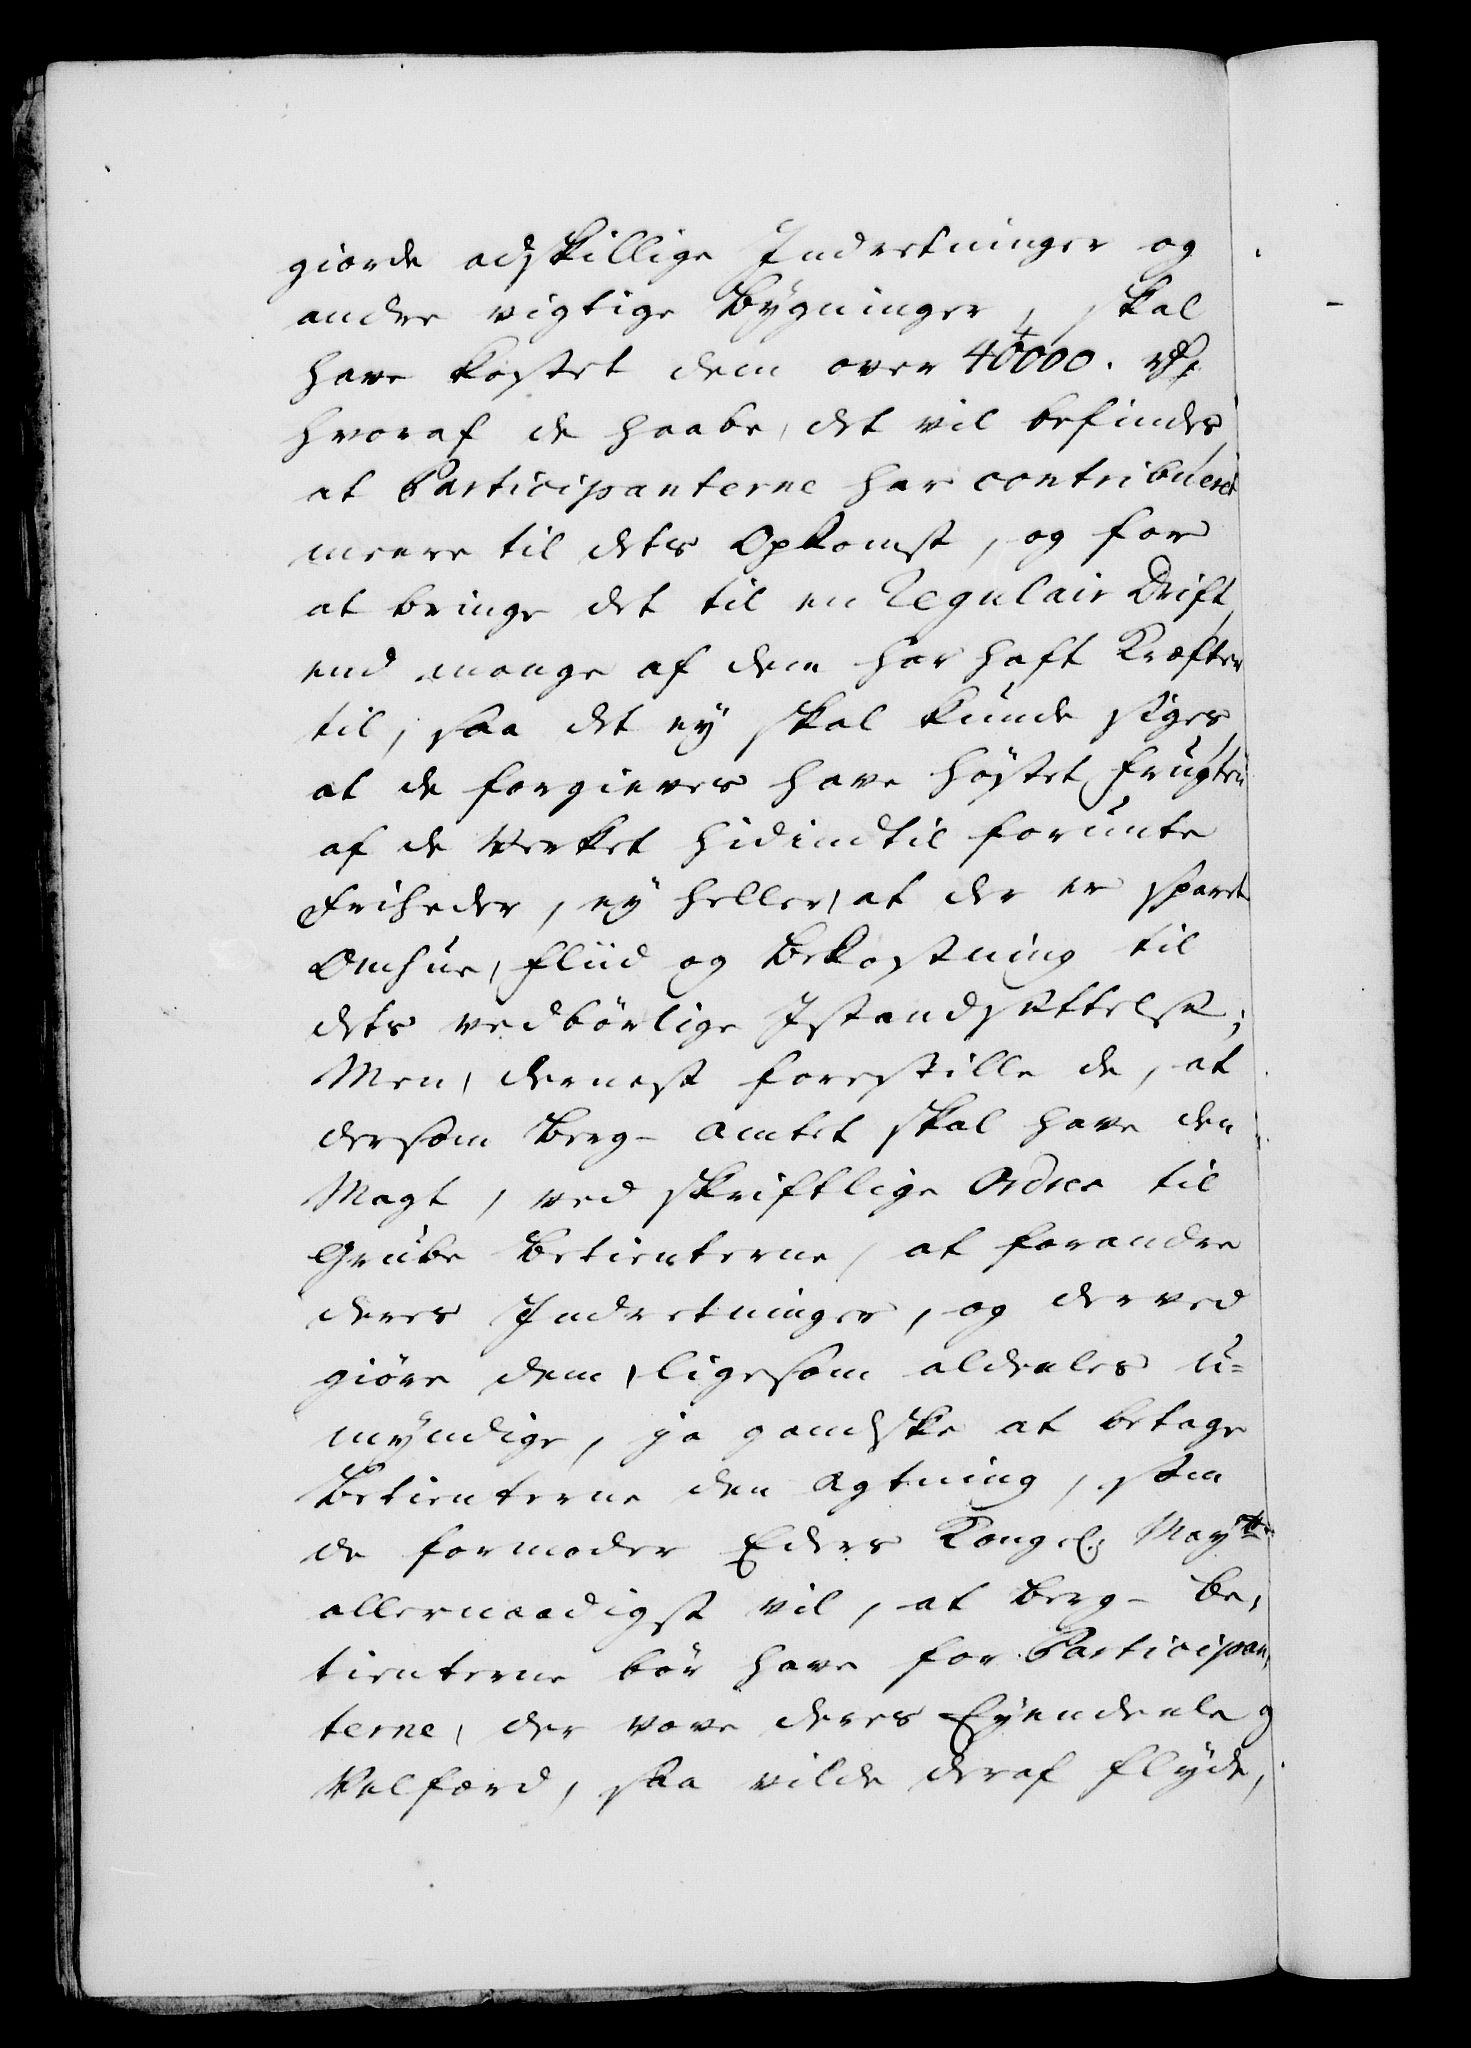 giorde adskillige Indretninger og
andre vigtige Bygninger, skal
have kostet dem over 40000. rdr
hvoraf de haabe, det vil befindes,
at Participanterne har contribueret
meere til dets Opkomst, og for
at bringe det til en Regulair Drift,
end mange af dem har haft Kræfter
til, saa det ey skal kunde siges,
at de forgieves have høstet Frugten
af de Verket hidindtil forunte
Friheder, ey heller, at der er sparet
Omhue, Fliid og Bekostning til
dets vedbørlige Istandsættelse;
Men, dernæst forestille de, at
dersom Berg-Amtet skal have den
Magt, ved skriftlige Ordres til
Grube Betienterne, at forandre
deres Indretninger, og derved
giøre dem, ligesom aldeeles u-
myndige, ja gandske at betage
Betienterne den Agtning, som
de formoder Eders Kongel. Maytt
allernaadigst vil, at Berg-Be-
tienterne bør have for Participan-
terne, der vove deres Eyendeele og
Velfærd, saa vilde deraf flyde,